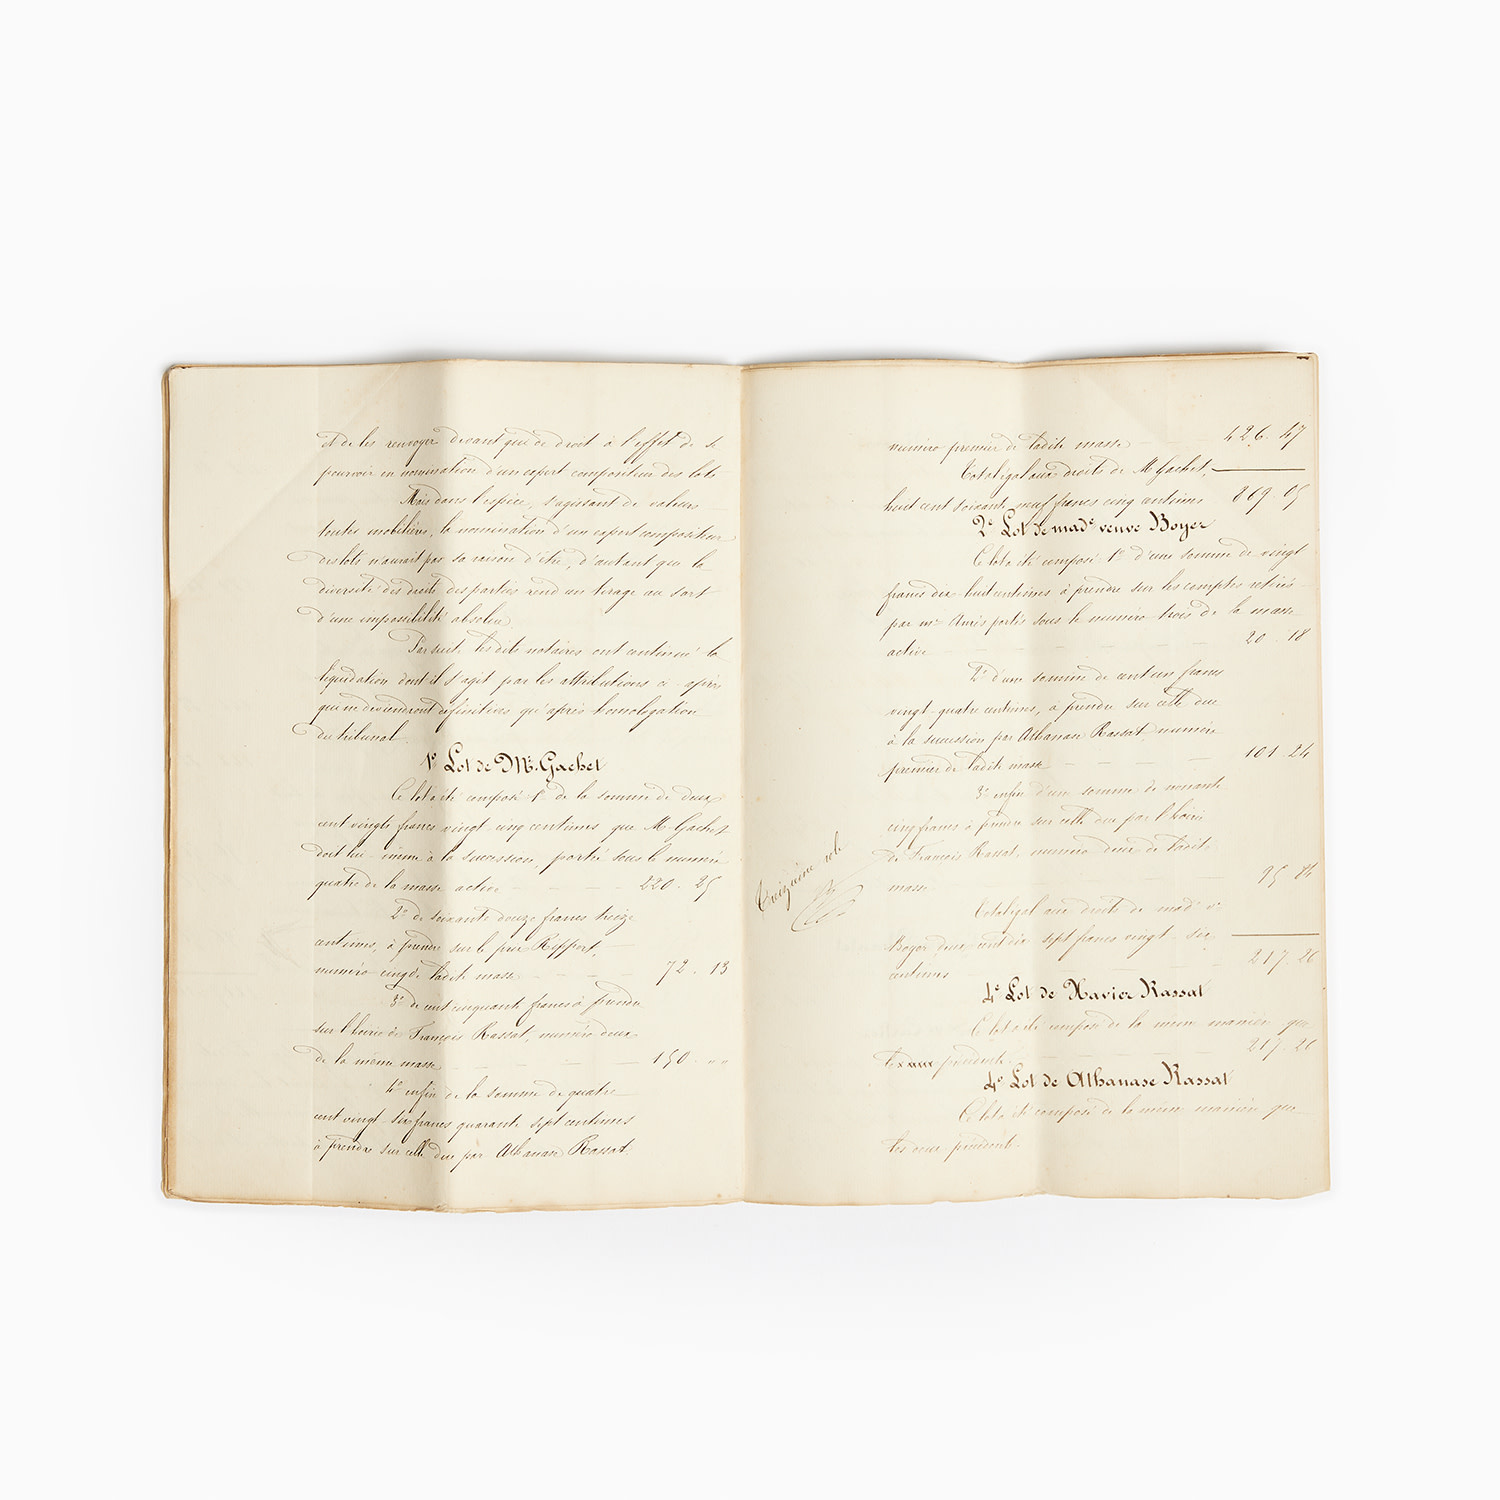 et de les renvoyer devant qui de droit à l'effet de se
pourvoir en nomination d'un expert compositeur des lots
Mais dans l'espèce, s'agissant de valeurs
toutes mobilières, la nomination d'un expert compositeur
des lots n'aurait pas sa raison d'être, d'autant que la
diversité des droits des parties rend un tirage au sort
d'une impossibilité absolue.
Par suite les dits notaires ont continué la
liquidation dont il s'agit par les attributions ci-après
qui ne deviendront définitives qu'après homologation
du tribunal.
1er Lot de Mr. Gachet
Ce lot a été composé 1° de la somme de deux
cent vingt francs vingt-cinq centimes que M Gachet
doit lui-même à la succession, portée sous le numéro
quatre de la masse active 220. 25
2° de soixante douze francs treize
centimes, à prendre sur le prix Riffort,
numéro cinq de ladite masse 72. 13
3° de cent cinquante francs à prendre
sur l'hoirie de François Rassat, numéro deux
de la même masse 150. ""
4° enfin de la somme de quatre
cent vingt-six francs quarante sept centimes
à prendre sur celle due par Athanase Rassat
numéro premier de ladite masse 426. 47
Total égal aux droits de M Gachet,
huit cent soixante neuf francs cinq centimes 869. 05
2e Lot de made veuve Boyer
Ce lot a été composé 1° d'une somme de vingt
francs dix-huit centimes à prendre sur les comptes retirés
par me portés sous le numéro trois de la masse
active 20. 18
2° d'une somme de cent un francs
vingt-quatre centimes, à prendre sur celle due
à la succession par Athanase Rassat numéro
premier de ladite masse 101. 24
3° enfin d'une somme de nonante
cinq francs à prendre sur celle due par l'hoirie
de François Rassat, numéro deux de ladite
masse 95. 84
Total égal aux droits de made ve
Boyer deux cent dix-sept francs vingt-six
centimes 217. 26
Treizième rôle
4e Lot de Xavier Rassat
Ce lot a été composé de la même manière que
le précédent. 217. 26
4e Lot de Athanase Rassat
Ce lot a été composé de la même manière que
les deux précédents.